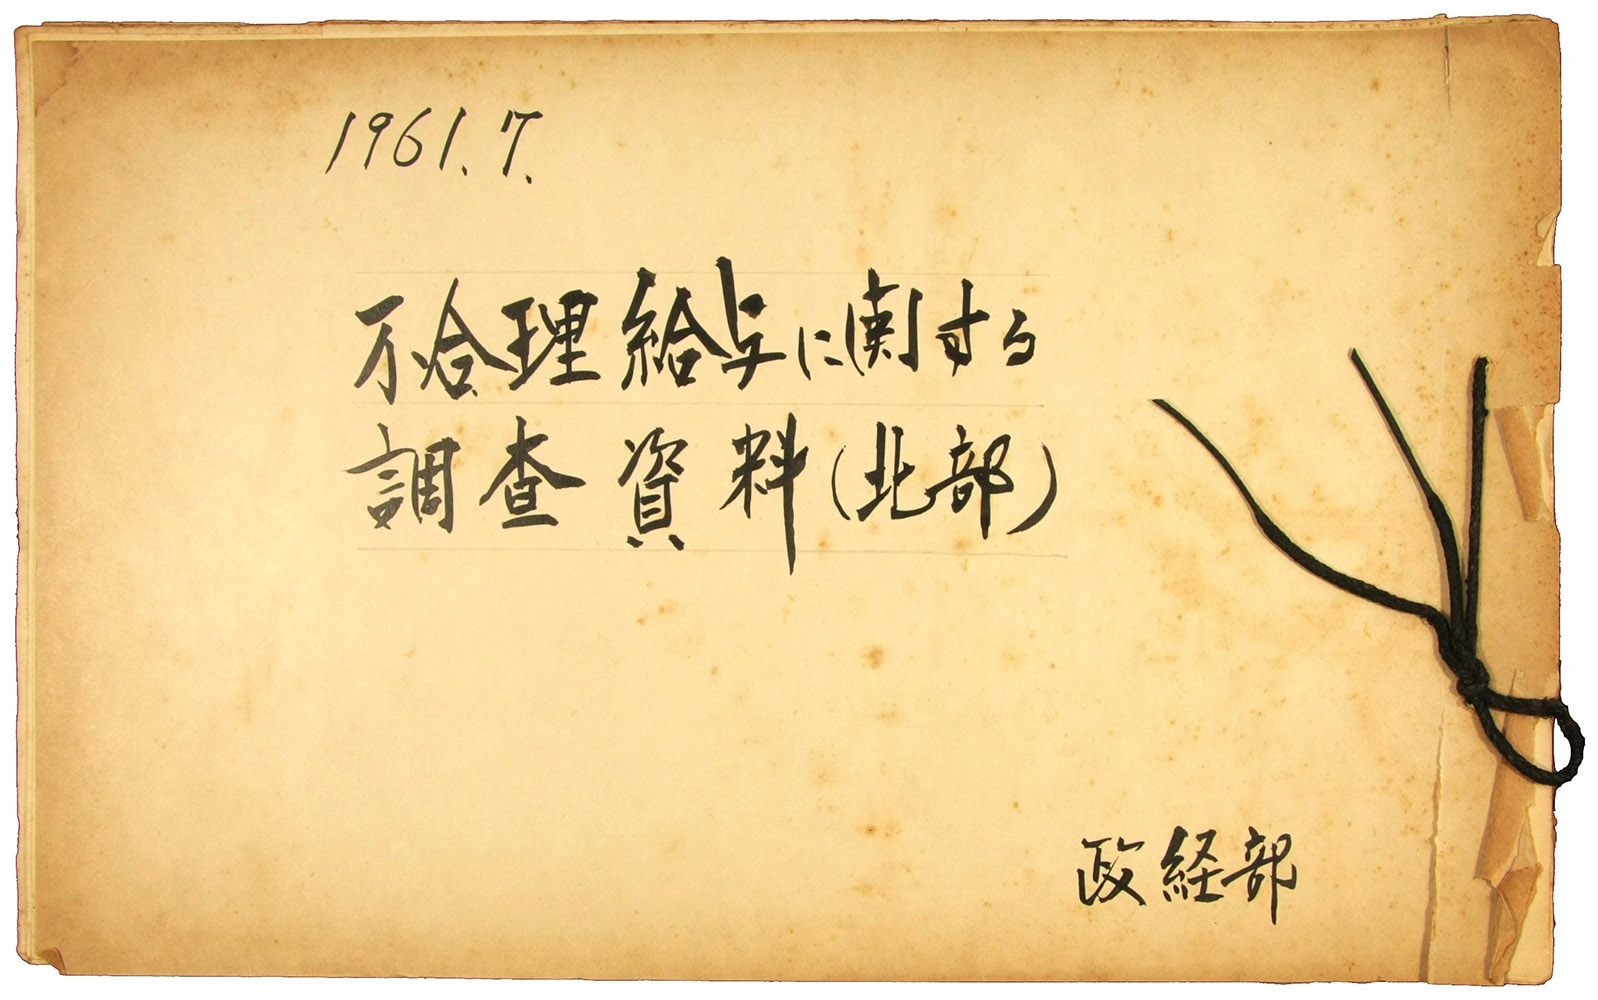 1961.7.
不合理給与に関する
調査資料(北部)
政経部